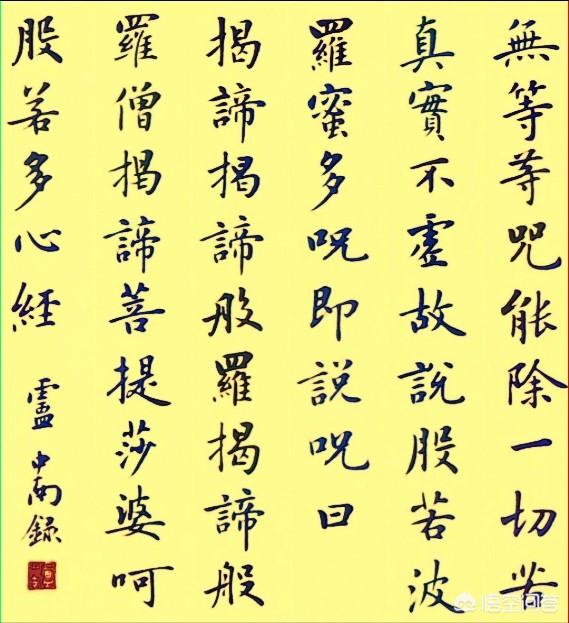 無等等咒能除一切苦
真實不虛故說股若波
羅蜜多呪即說呪曰
揭諦揭諦般羅揭諦般
羅僧揭諦菩提莎婆呵
股若多心經
盧中南錄
悟空问答